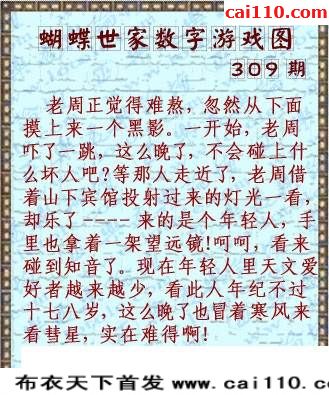 cai110.com
蝴蝶世家数字游戏图
309 期
老周正觉得难熬，忽然从下面
摸上来一个黑影。一开始，老周
吓了一跳，这么晚了，不会碰上什
么坏人吧?等那人走近了，老周借
着山下宾馆投射过来的灯光一看，
却乐了---- 来的是个年轻人，手
里也拿着一架望远镜!呵呵，看来
碰到知音了。现在年轻人里天文爱
好者越来越少，看此人年纪不过
十七八岁，这么晚了也冒着寒风来
看彗星，实在难得啊!
布衣天下首发 www.cai110.c